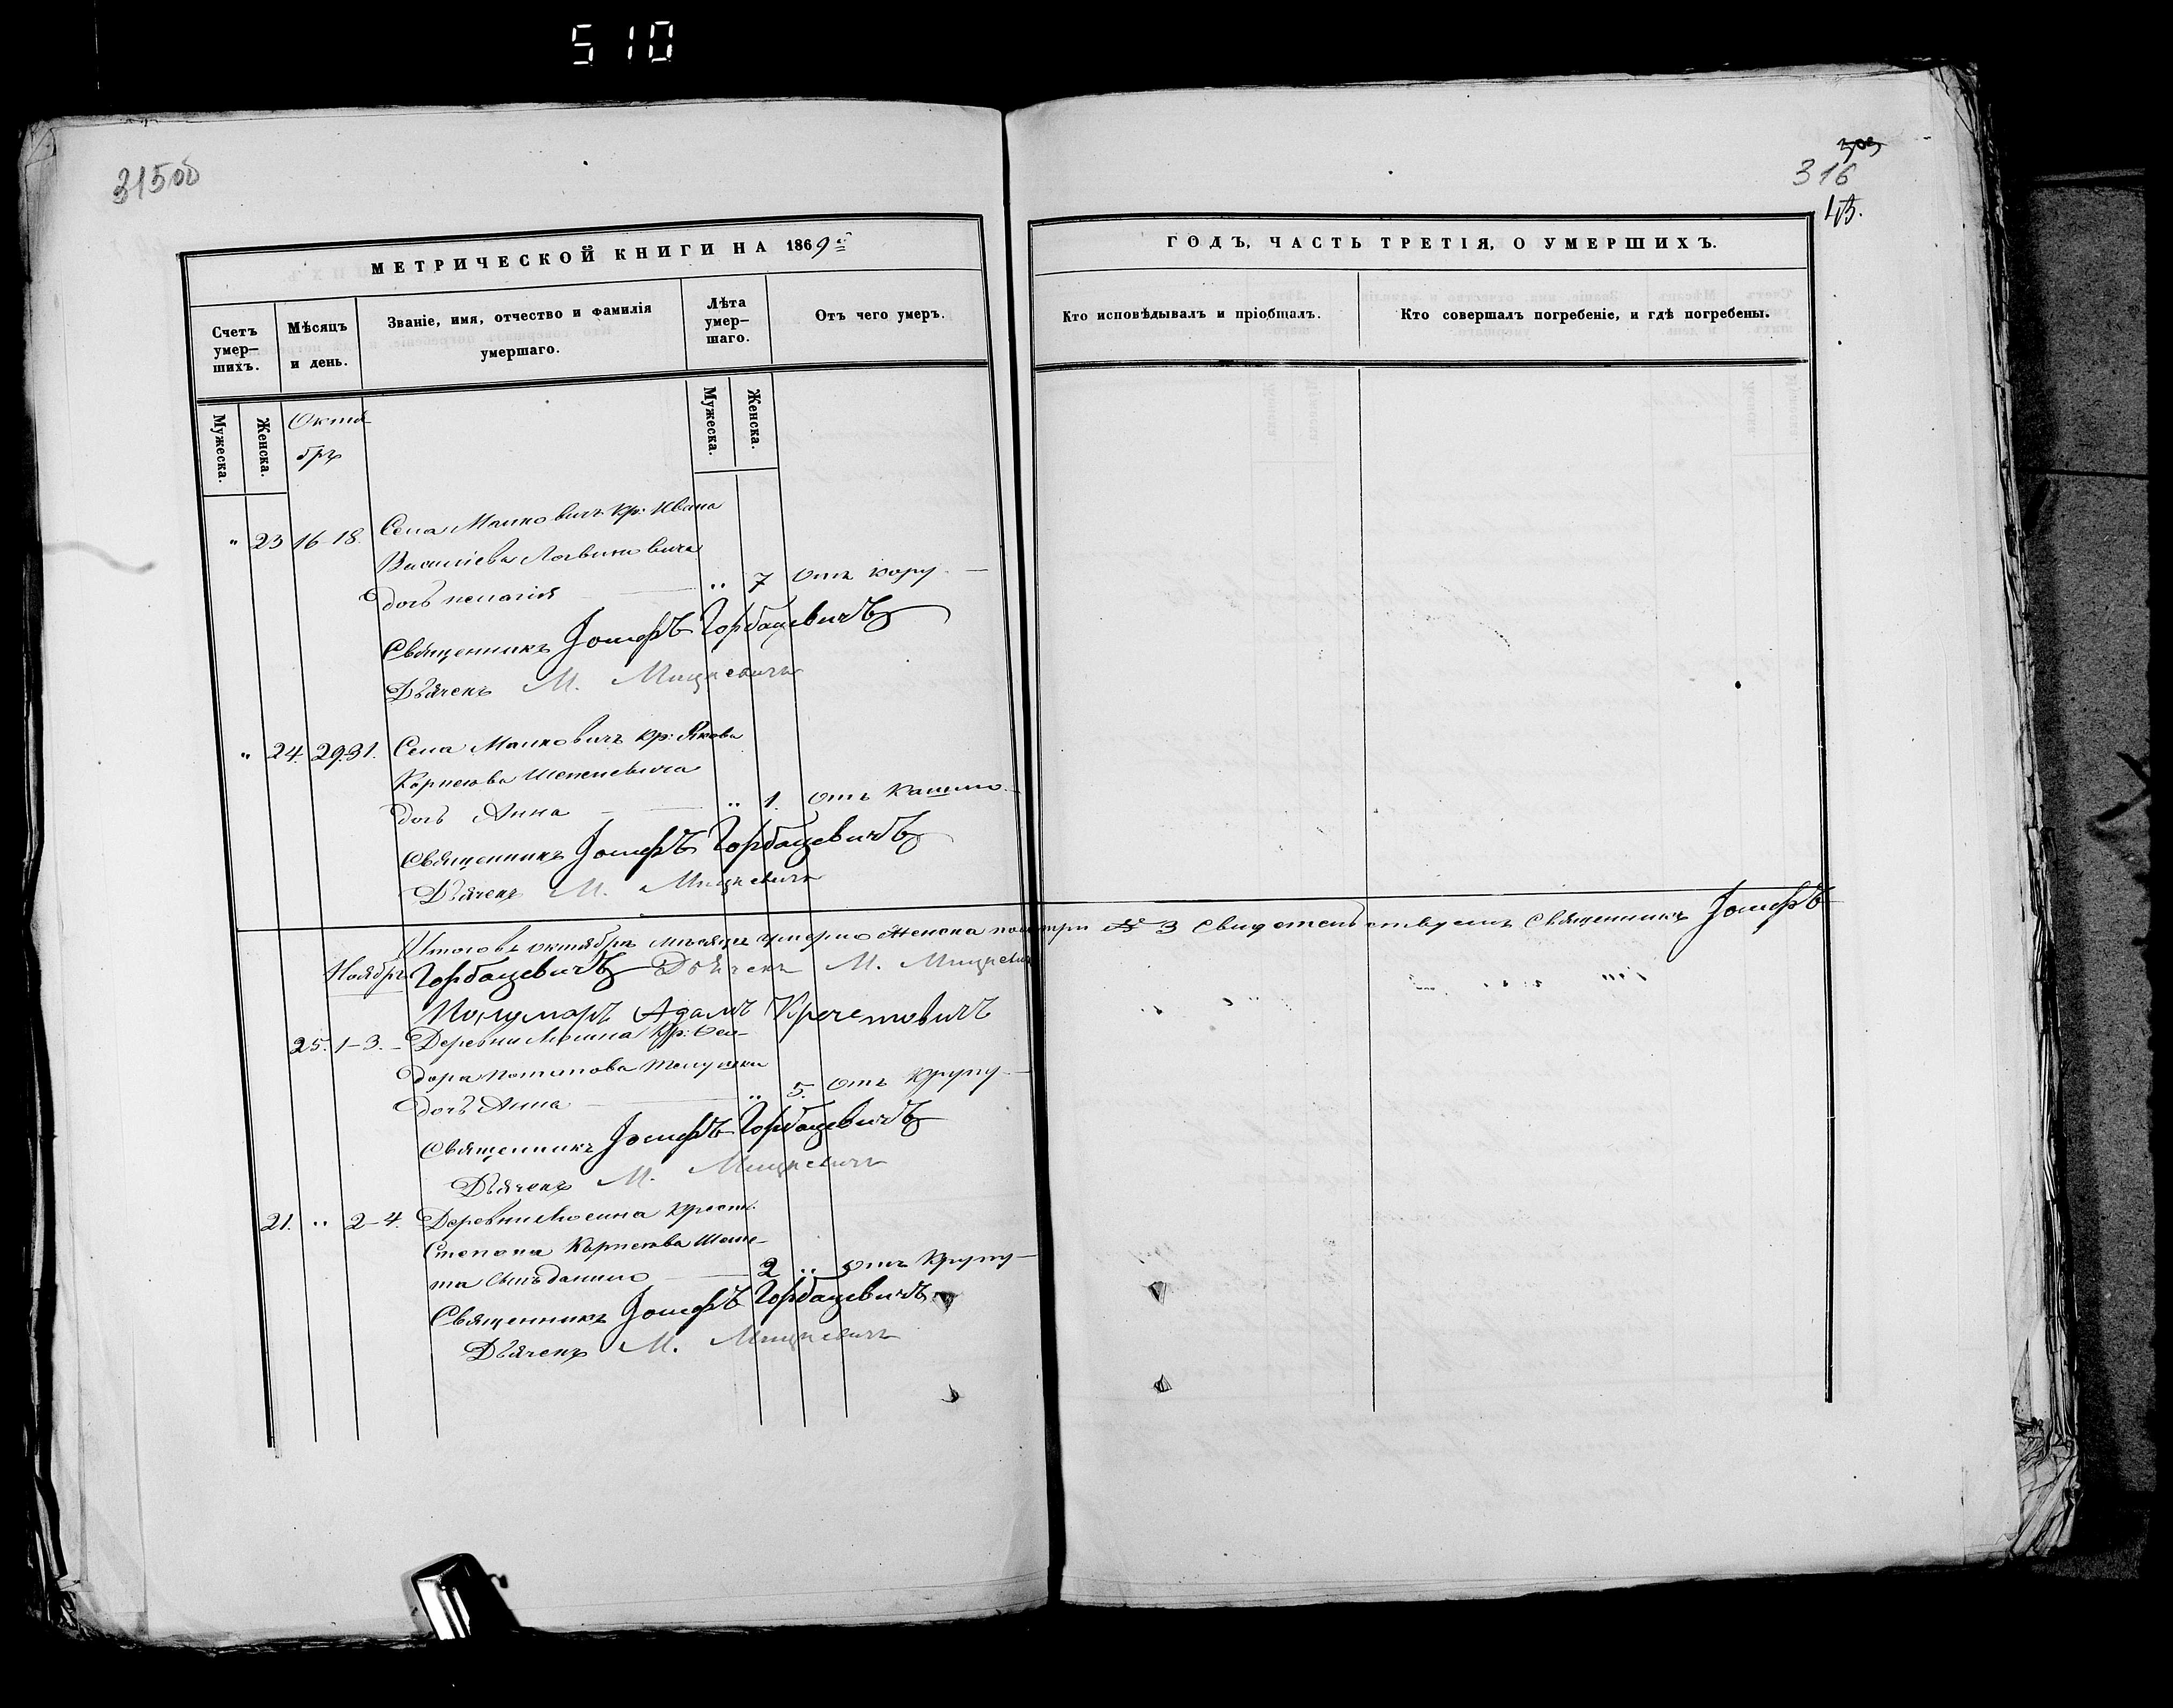 510
315об
303
316
13.
МЕТРИЧЕСКОЙ КНИГИ НА 1869й
ГОДЪ, ЧАСТЬ ТРЕТІЯ, О УМЕРШИХЪ.
Счетъ умер-шихъ.
Мѣсяцъ и день.
Званіе, имя, отчество и фамилія умершаго.
Лѣта умер-шаго.
Отъ чего умеръ.
Кто исповѣдывалъ и пріобщалъ.
Кто совершалъ погребеніе, и гдѣ погребены.
Мужеска.
Женска.
Октя
брь
Мужеска.
Женска.
Села Малковичъ кр: Ивана
" 23 16-18.
Василіева Логвиновича
дочь пелагія " 7 отъ кору
Священникъ Іосифъ Горбацевичъ
Дьячекъ М. Мицкевичъ
" 24. 29-31. Села Малковичъ кр: Якова
Корнеюва
дочь Анна " 1. отъ Кашлю
Священникъ Іосифъ Горбацевичъ
Дьячекъ М. Мицкевичъ
Итого въ октябрѣ мѣсяце умерло женска пола три № 3 Свидетельствуемъ Священникъ Іосифъ
Ноябрь Горбацевичъ Дьячекъ М. Мицкевичъ
Понумарь Адамъ Кречетовичъ
25. 1-3. Деревни Люсина Кр: Фео-
дора
дочь Анна " 5. отъ Крупу
Священникъ Іосифъ Горбацевичъ
Дьячекъ М. Мицкевичъ
21. " 2-4. Деревни Люсина крест:
Степана Корнеюва Шоле-
та сынъ данило 2 " отъ Крупу
Священникъ Іосифъ Горбацевичъ
Дьячекъ М. Мицкевичъ